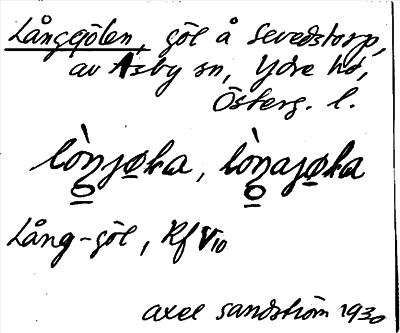 Långgölen, göl å Sevedstorp,
av Asby sn, Ydre hd,
Österg. l.
Lång-göl, Rf V10
Axel Sandström 1930